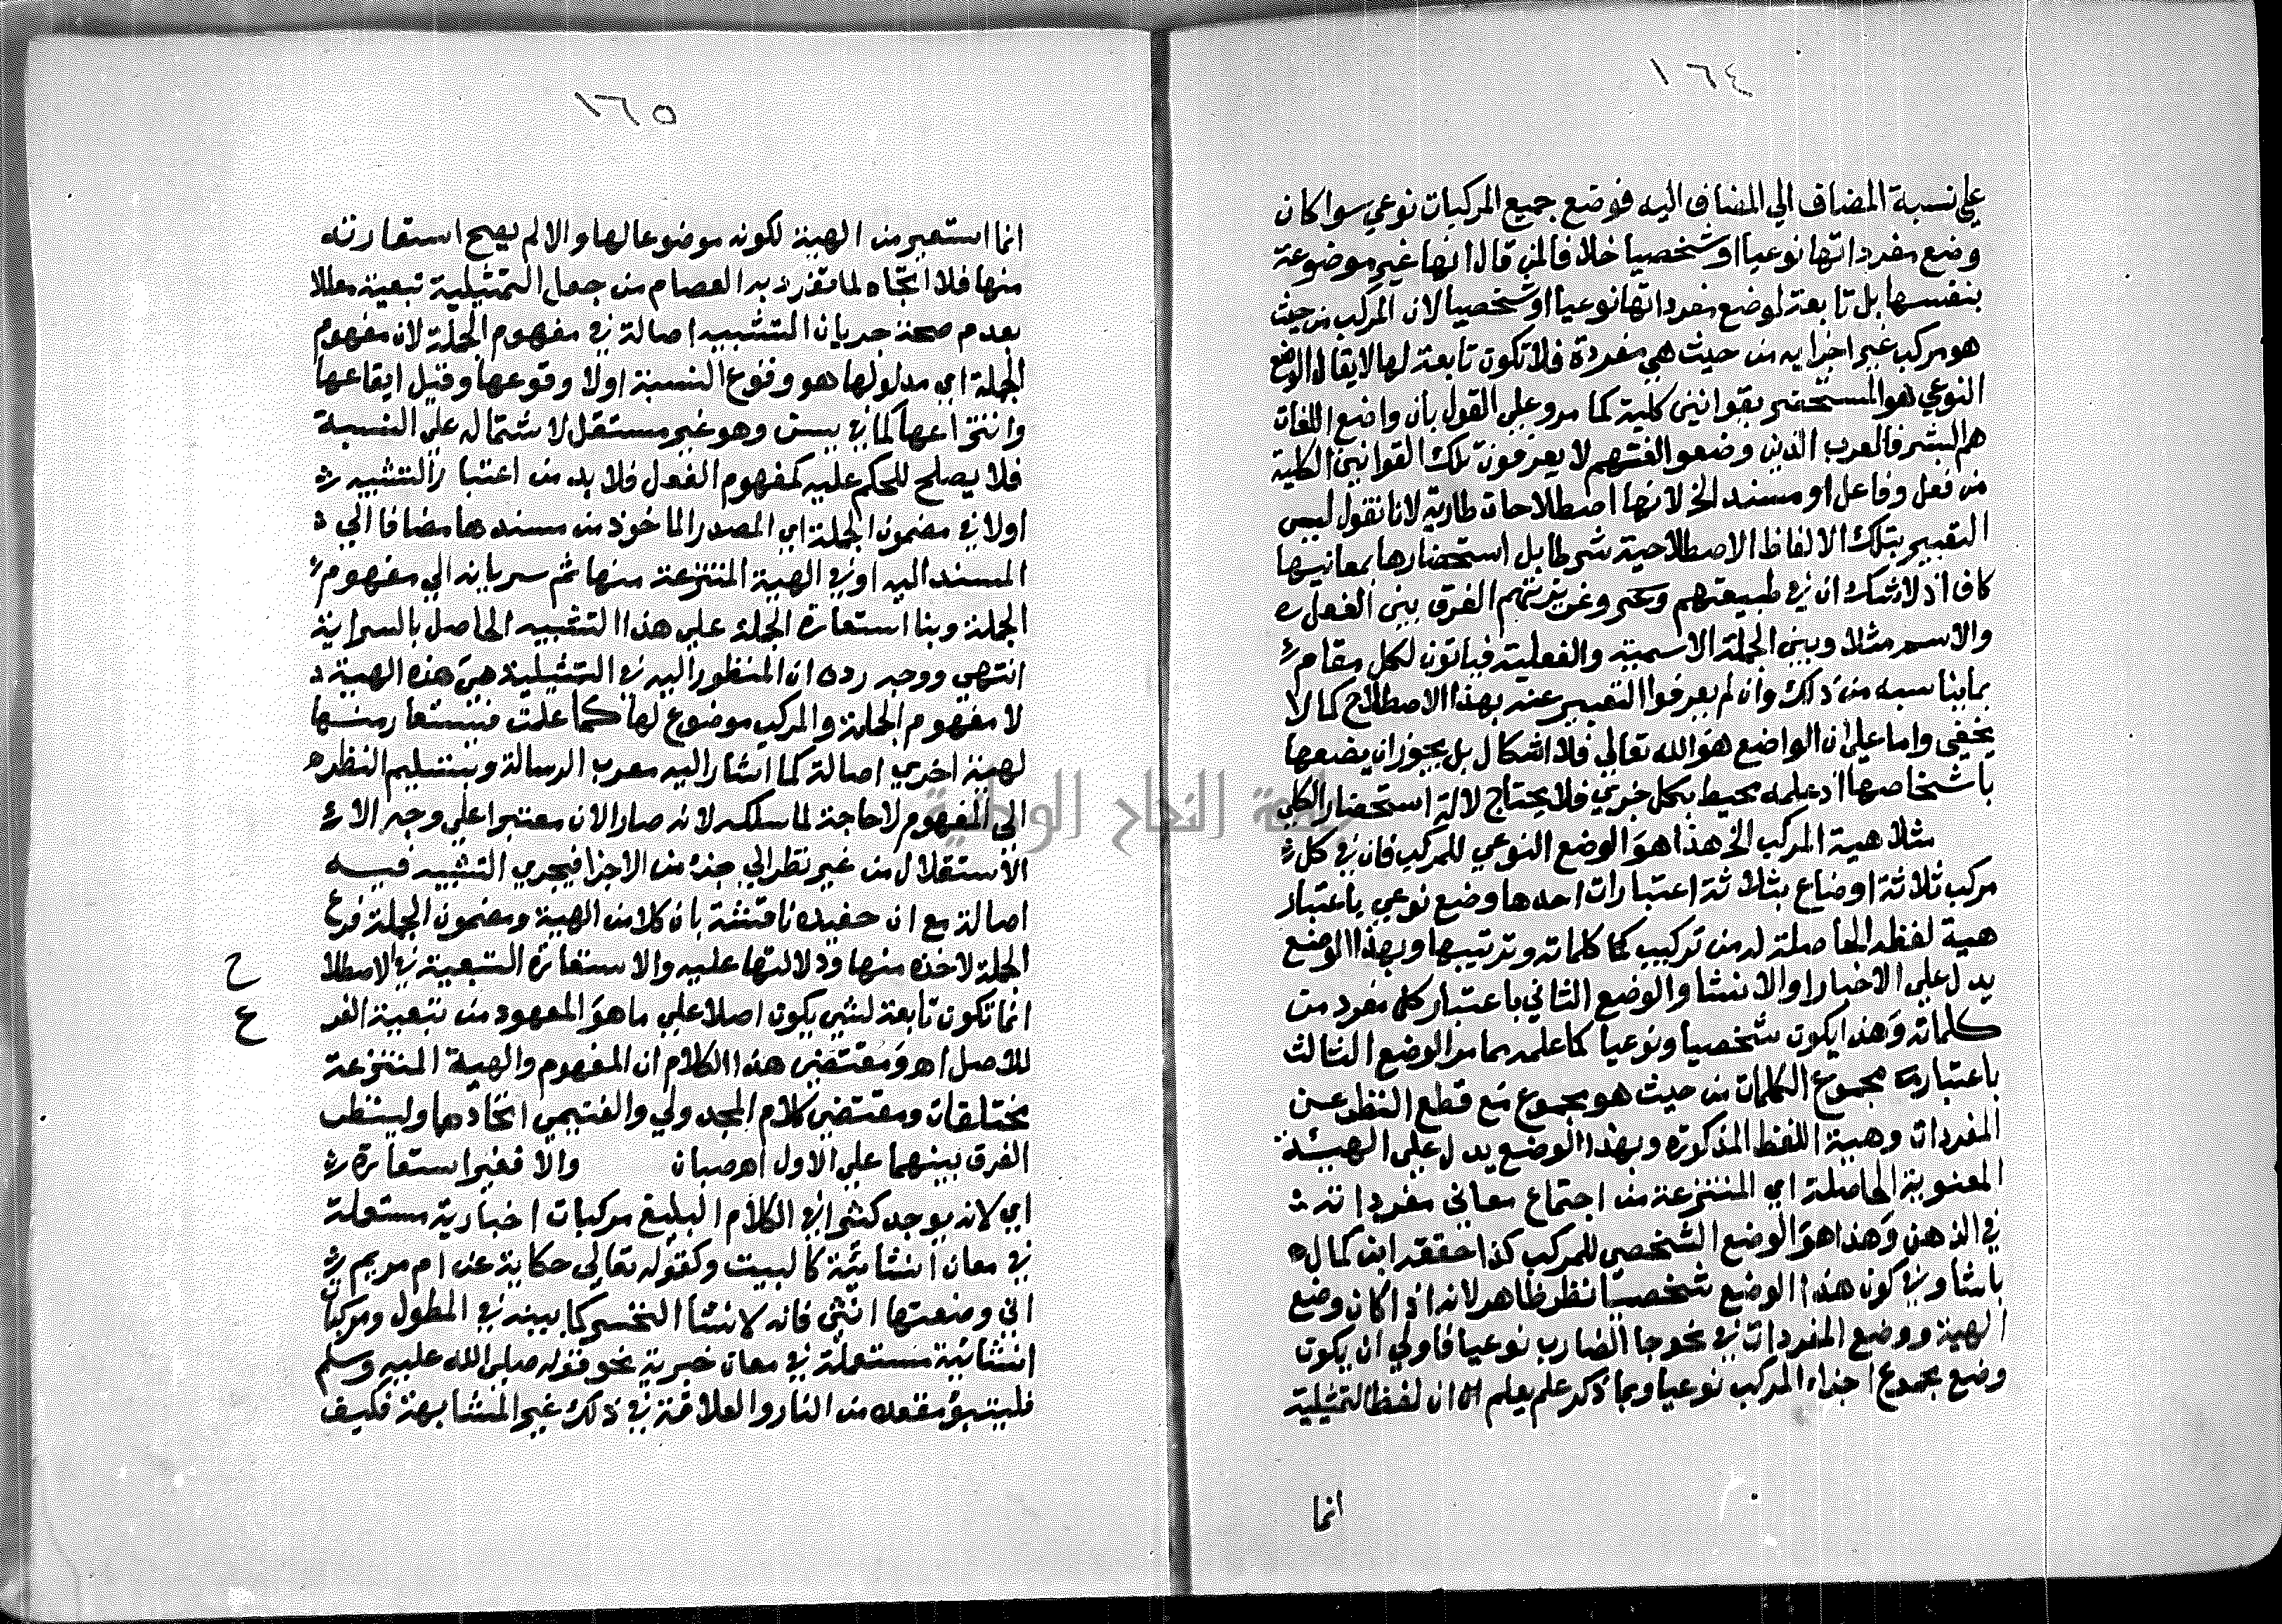 ١٦٤
علي نسبة المضاف الي المضاف اليه فوضع جميع المركبات نوعي سوا كان
وضع مفرداتها نوعيا او شخصيا خلافا لمن قال انها غير موضوعة
بنفسها بل تابعة لوضع مفرداتها نوعيا او شخصيا لان المركب من حيث
هو مركب غير اجزايه من حيث هي مفردة فلا تكون تابعة لها لا يقال الوضع
النوعي هو المستحضر بقوانين كلية كما مر وعلي القول بان واضع اللغات
هم البشر فالعرب الذين وضعوا لغتهم لا يعرفون تلك القوانين الكلية
من فعل وفاعل او مسند الخ لانها اصطلاحات طارية لانا نقول ليس
التعبير بتلك الالفاظ الاصطلاحية شرطا بل استحضارها بمعانيها
كاف اذ لا شك ان في طبيعتهم وغريزتهم الفرق بين الفعل
والاسم مثلا وبين الجملة الاسمية والفعلية فياتون لكل مقام
بما يناسبه من ذلك وان لم يعرفوا التعبير عنه بهذا الاصطلاح كما لا
يخفي واما علي ان الواضع هو الله تعالي فلا اشكال بل يجوز ان يضعها
باشخاصها اذ علمه محيط بكل جزي فلا يحتاج لالة استحضار الكلي
مثلا هية المركب الخ هذا هو الوضع النوعي للمركب فان في كل
مركب ثلاثة اوضاع بثلاثة اعتبارات احدها وضع نوعي باعتبار
هية لفظه الحاصلة له من تركيب كلماته وترتيبها وبهذا الوضع
يدل علي الاخبار او الانشا والوضع الثاني باعتبار كل مفرد من
كلماته وهذا يكون شخصيا ونوعيا كما علمه مما مر الوضع الثالث
باعتبار مجموع الكلمات من حيث هو مجموع مع قطع النظر عن
المفردات وهية اللفظ المذكورة وبهذا الوضع يدل علي الهيئة
المعنوية الحاصلة اي المنتزعة من اجتماع معاني مفرداته
في الذهن وهذا هو الوضع الشخصي للمركب كذا حققه ابن كمال
باشا وفي كون هذا الوضع شخصيا نظر ظاهر لانه اذا كان وضع
الهية ووضع المفردات في نحو جا الضارب نوعيا فاولي ان يكون
وضع مجموع اجزاء المركب نوعيا وبما ذكر علم ان لفظ التمثيلية
انما
١٦٥
انما استعير من الهية لكونه موضوعا لها والا لم يصح استعارته
منها فلا اتجاه لما تفرد به العصام من جعل التمثيلية تبعية معللا
بعدم صحة جريان التشبيه اصالة في مفهوم الجملة لان مفهوم
الجملة اي مدلولها هو وقوع النسبة اولا وقوعها وقيل ايقاعها
وانتزاعها كما في يس وهو غير مستقل لاشتماله علي النسبة
فلا يصلح للحكم عليه كمفهوم الفعل فلا بد من اعتبار التشبيه
اولا في مضمون الجملة اي المصدر الماخوذ من مسندها مضافا الي
المسند اليه او في الهية المنتزعة منها ثم سريانه الي مفهوم
الجملة وبنا استعارة الجملة علي هذا التشبيه الحاصل بالسراية
انتهي ووجه رده ان المنظور اليه في التمثيلية هي هذه الهية
لا مفهوم الجملة والمركب موضوع لها كما علمت فتستعار منها
لهية اخري اصالة كما اشار اليه معرب الرسالة وبتسليم النظر
الي المفهوم لا حاجة لما سلكه لانه صار الان معتبرا علي وجه
الاستقلال من غير نظر الي جزء من الاجزا فيجري التشبيه فيه
اصالة مع ان حفيده ناقشه بان كلا من الهية ومضمون الجملة فرع
الجملة لاخذه منها ودلالتها عليه والاستعارة التبعية في الاصطلا ح
انما تكون تابعة لشي يكون اصلا علي ما هو المعهود من تبعية الفر ع
للاصل اه ومقتضي هذا الكلام ان المفهوم والهية المنتزعة
مختلفان ومقتضي كلام المجدولي والفنيمي اتحادهما ولينظر
الفرق بينهما علي الاول اه صبان والا فغير استعارة
اي لانه يوجد كثيرا في الكلام البليغ مركبات اخبارية مستعملة
في معان انشائية كالبيت وكقوله تعالي حكاية عن ام مريم
اني وضعتها انثي فانه لانشا التحسر كما بينه في المطول ومركبات
انشائية مستعملة في معان خبرية نحو قوله صلي الله عليه وسلم
فليتبؤ مقعده من النار والعلاقة في ذلك غير المشابهة فكيف
جامعة النجاح الوطنية